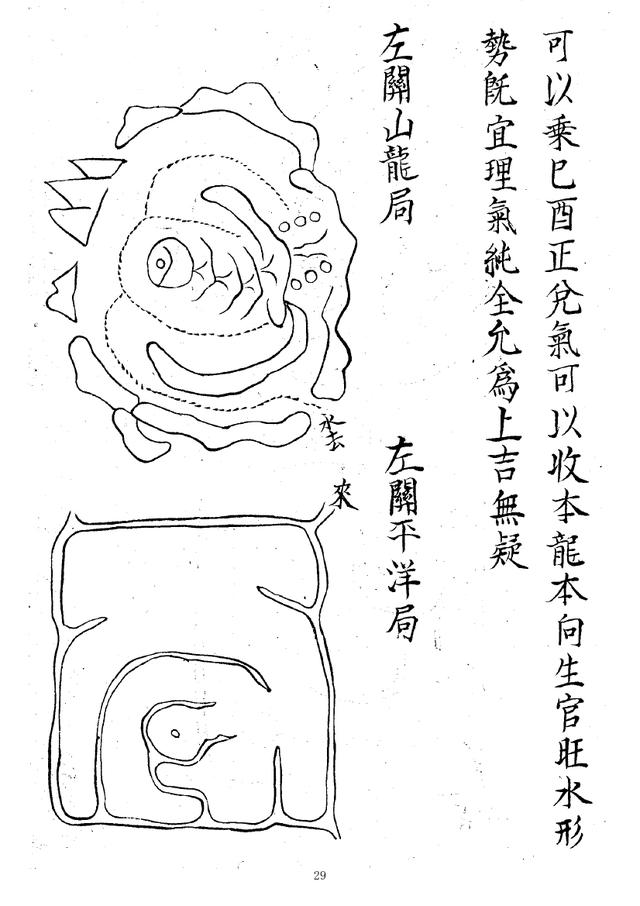 可以乗巳酉正兌氣可以收本龍本向生官旺水形
勢旣宜理氣純全允爲上吉無疑
左關山龍局
水去
左關平洋局
來
29